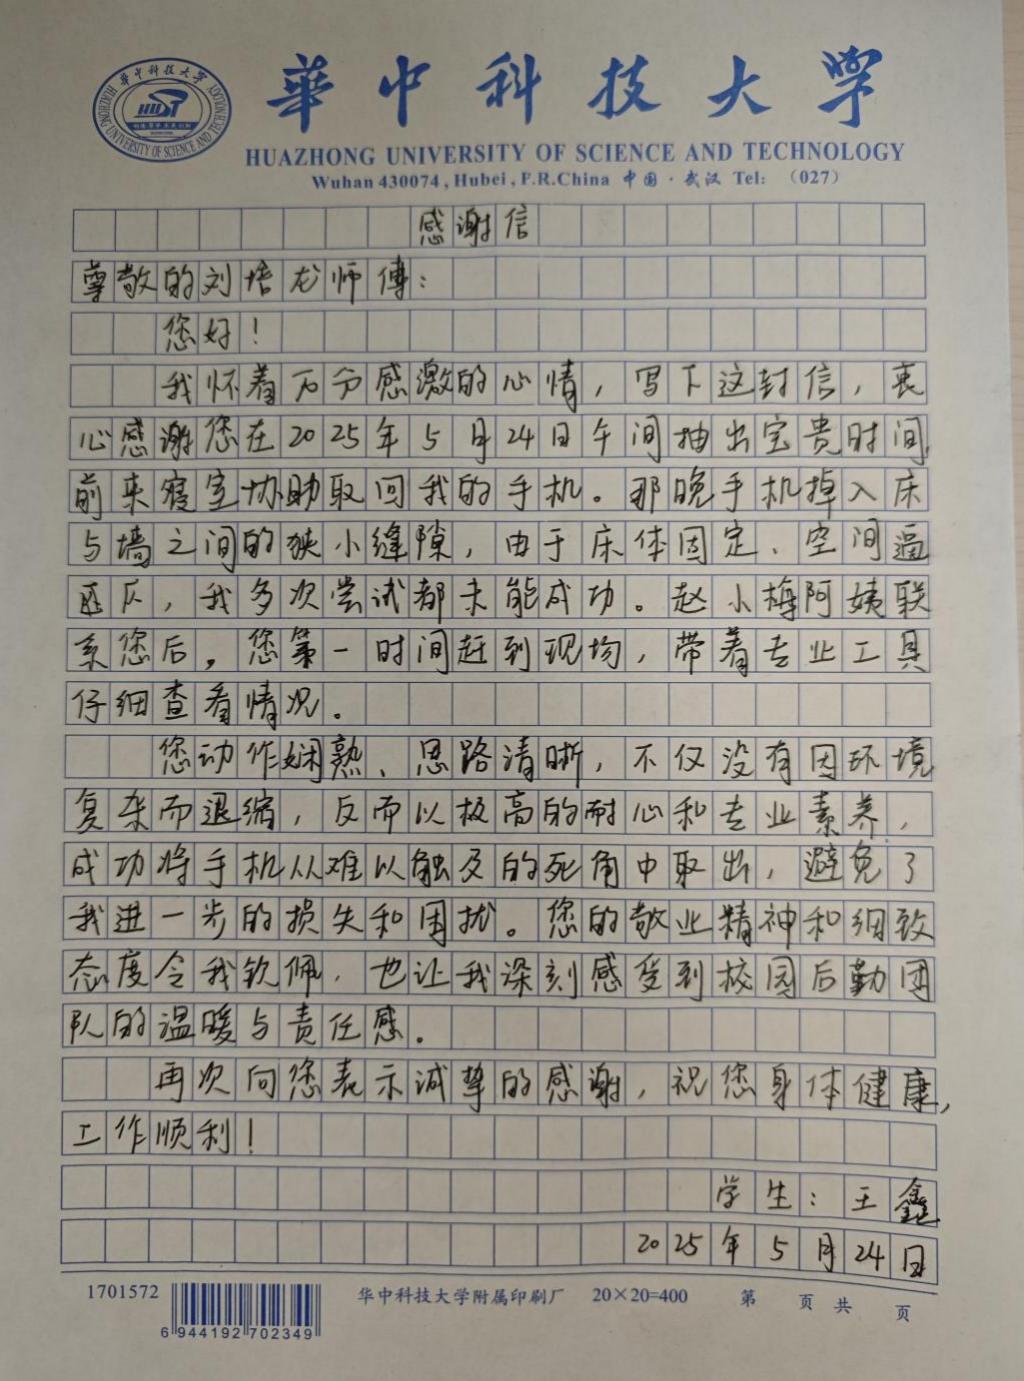 華中科技大学
HUAZHONG UNIVERSITY OF SCIENCE AND TECHNOLOGY
Wuhan 430074, Hubei, P.R.China 中国·武汉 Tel: （027）
感谢信
尊敬的刘培龙师傅：
您好！
我怀着万分感激的心情，写下这封信，衷
心感谢您在2025年5月24日午间抽出宝贵时间，
前来寝室协助取回我的手机。那晚手机掉入床
与墙之间的狭小缝隙，由于床体固定、空间逼
仄，我多次尝试都未能成功。赵小梅阿姨联
系您后，您第一时间赶到现场，带着专业工具
仔细查看情况。
您动作娴熟、思路清晰，不仅没有因环境
复杂而退缩，反而以极高的耐心和专业素养，
成功将手机从难以触及的死角中取出，避免了
我进一步的损失和困扰。您的敬业精神和细致
态度令我钦佩，也让我深刻感受到校园后勤团
队的温暖与责任感。
再次向您表示诚挚的感谢，祝您身体健康，
工作顺利！
学生：王鑫
2025年5月24日
1701572
6 944192 702349
华中科技大学附属印刷厂 20×20=400 第 页 共 页